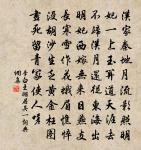 漢家秦地月流影照明
妃一上玉關道天涯去
不歸漢月還從東海出
明妃西嫁無來日燕支
長寒雪作花蛾眉憔悴
沒胡沙生乏黃金枉圖
畫死留青塚使人嗟
李白王昭君其一